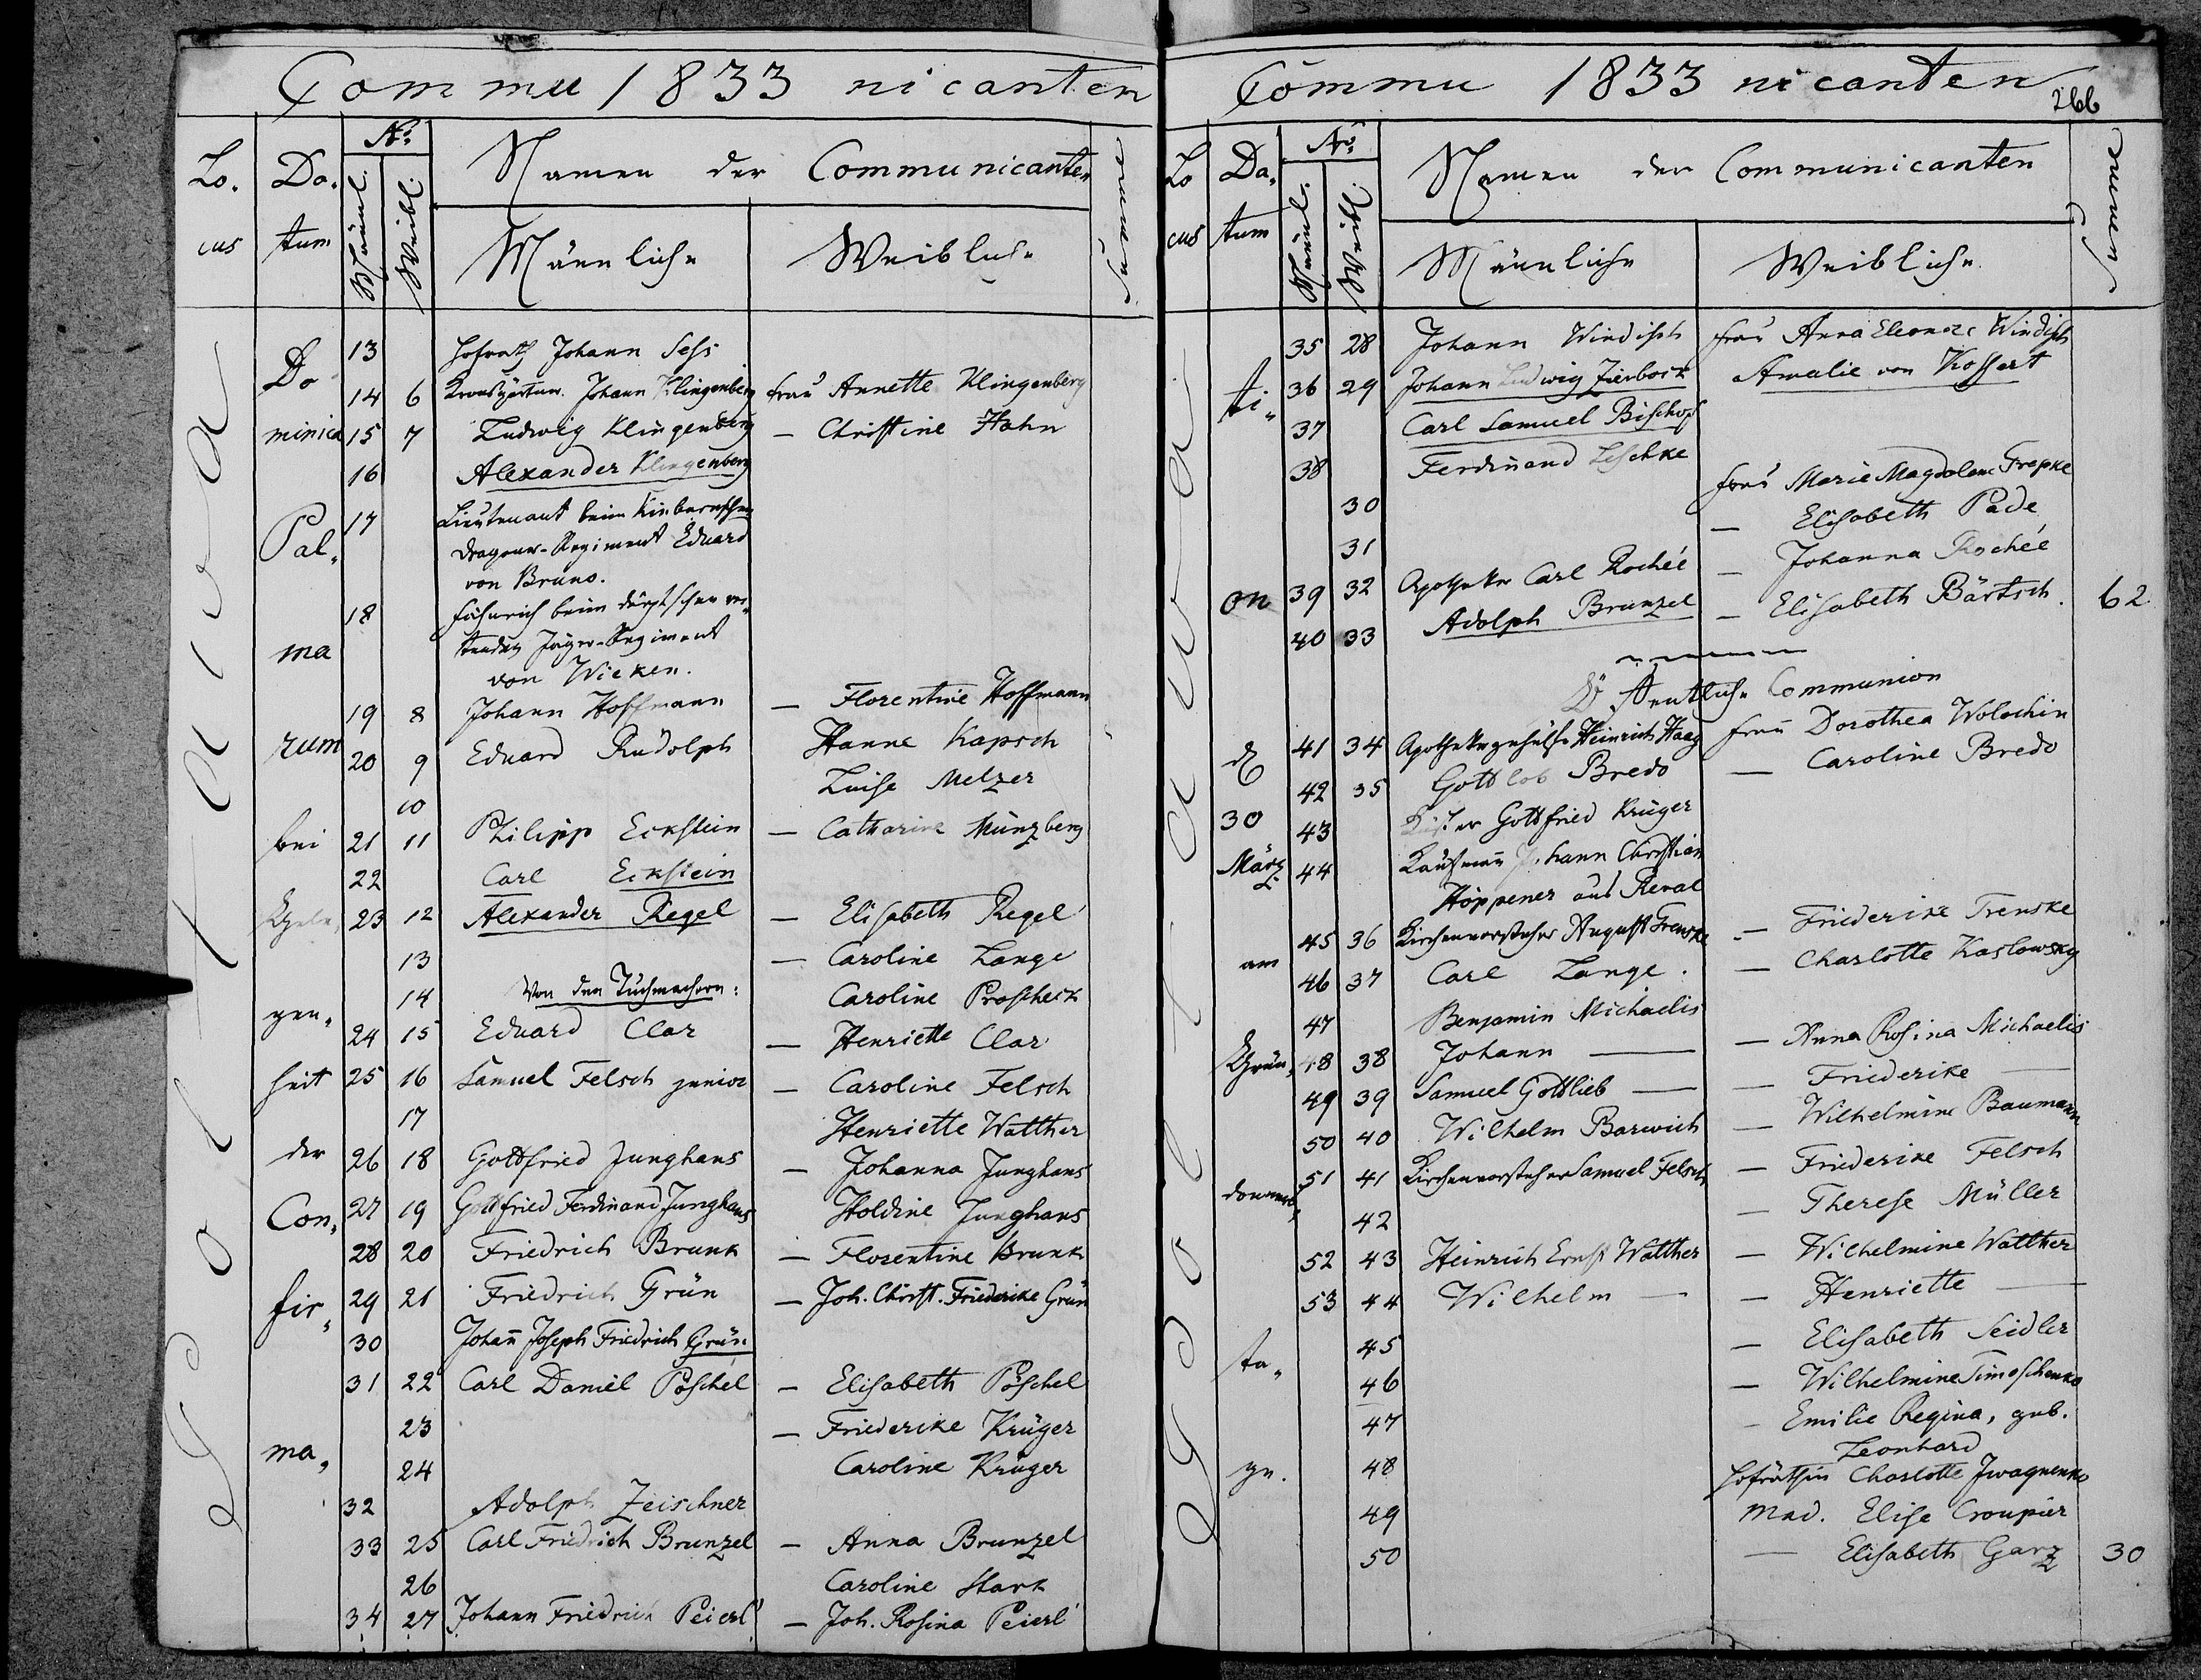 Commu 1833 nicanten
Locus Datum No. Männl. Weibl. Namen der Communicanten Summen
Männliche Weibliche
Poltawa
Dominica Palmarum bei Gelegenheit der Confirma-
13 Hofrath Johann Sess
14 6 Kronsgärtner Johann Klingenberg Frau Annette Klingenberg
15 7 Ludwig Klingenberg — Christine Hahn
16 Alexander Klingenberg
17 Lieutenant beim Kinburnschen
Dragoner-Regiment Eduard
von Bruno.
18 Fähnrich beim dörptschen rei-
tenden Jäger-Regiment
von Wieken.
19 8 Johann Hoffmann — Florentine Hoffmann
20 9 Eduard Rudolph Hanne Kapsch
10 Luise Melzer
21 11 Philipp Eckstein — Catharine Münzberg
22 Carl Eckstein
23 12 Alexander Regel — Elisabeth Regel
13 — Caroline Lange
14 Von den Tuchmachern: Caroline Proscheck
24 15 Eduard Clar — Henriette Clar
25 16 Samuel Felsch junior — Caroline Felsch
17 Henriette Walther
26 18 Gottfried Junghans — Johanna Junghans
27 19 Gottfried Ferdinand Junghans Holdine Junghans
28 20 Friedrich Brunk — Florentine Brunk
29 21 Friedrich Grün — Joh. Christ. Friederike Grün
30 Johann Joseph Friedrich Grün.
31 22 Carl Daniel Pöschel — Elisabeth Pöschel
23 — Friederike Krüger
24 Caroline Krüger
32 Adolph Zeischner
33 25 Carl Friedrich Brunzel — Anna Brunzel
26 Caroline Stark
34 27 Johann Friedrich Peierl — Joh. Rosina Peierl
Commu 1833 nicanten
266
Locus Datum No. Männl. Weibl. Namen der Communicanten Summen
Männliche Weibliche
Poltawa
ti-
on
d
30
März
am
Grün-
donners-
ta-
ge.
35 28 Johann Windisch Frau Anna Eleonore Windisch
36 29 Johann Ludwig Zierbock Amalie von Kossart
37 Carl Samuel Bischof
38 Ferdinand Leschke
30 Frau Marie Magdalene Trepke
31 — Elisabeth Pade
39 32 Apotheker Carl Rochée — Johanna Rochée
40 33 Adolph Brunzel — Elisabeth Bärtsch. 62
Öffentliche Communion
41 34 Apothekergehülfe Heinrich Haag Frau Dorothea Wolochin
42 35 Gottlob Bredo — Caroline Bredo
43 Küster Gottfried Krüger
44 Kaufmann Johann Christian
Höppener aus Reval
45 36 Kirchenvorsteher August Trenske — Friederike Trenske
46 37 Carl Lange. — Charlotte Kaslowsky
47 Benjamin Michaelis
48 38 Johann — — Anna Rosina Michaelis
49 39 Samuel Gottlieb — — Friederike —
50 40 Wilhelm Barwich — Wilhelmine Baumann
51 41 Kirchenvorsteher Samuel Felsch — Friederike Felsch
42 — Therese Müller
52 43 Heinrich Ernst Walther — Wilhelmine Walther
53 44 Wilhelm — — Henriette —
45 — Elisabeth Seidler
46 — Wilhelmine Timoschenko
47 — Emilie Regina, geb.
Leonhard
48 Hofräthin Charlotte Iwagnenko
49 Mad. Elise Croupier
50 — Elisabeth Garz 30